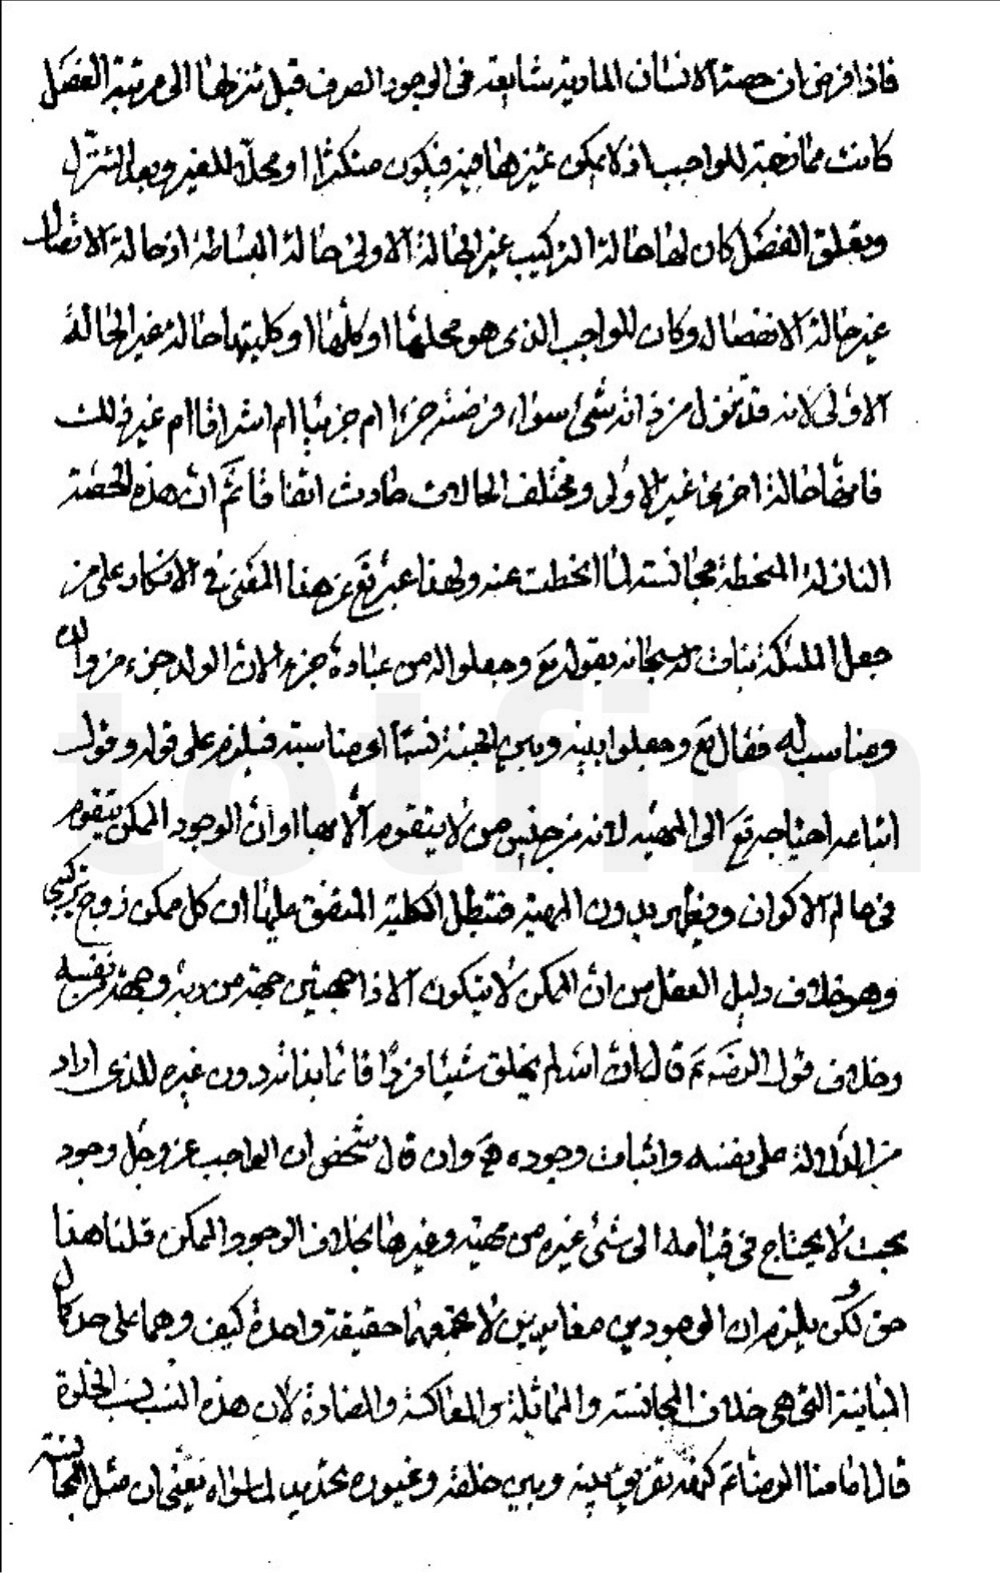 فاذا فرض ان حصة الانسان المادية شايعة فى الوجود الصرف قبل تنزلها الى مرتبة الفصل
كانت مما فهبة للواجب اذ لا يمكن تميزها فيه فيكون متكثرا او محلا للغير وبعد التنزل
وتعلق الفصل كان لها حالة التركيب غير الحالة الاولى حالة البساطة اذ حالة الاتصال
غير حالة الانفصال وكان للواجب الذى هو محلها او كلها او كليتها حالة غير الحالة
الاولى لانه قد نزل من ذاته شئ سواء فرضته جزءا ام جزئيا ام اشراقا ام غير ذلك
فله حالة اخرى غير الاولى ومختلف الحالات حادث اتفاقا ثم ان هذه الحصة
النازلة المنحطة مجانسة لما انحطت عنه ولهذا عبر تع عن هذا المعنى فى الانكار على من
جعل الملئكة بنات له سبحانه بقوله تع وجعلوا له من عباده جزءا لان الولد جزء من والده
ومناسب له فقال تع وجعلوا بينه وبين الجنة نسبا اى مناسبة فيلزم على قوله وقول
اتباعه احتياجه تع الى المهية لانه من جنس من لا يتقوم الا بها او ان الوجود الممكن يتقوم
فى عالم الاكوان ويظهر بدون المهية فتبطل الكلية المتفق عليها ان كل ممكن زوج تركيبى
وهو خلاف دليل العقل من ان الممكن لا يتكون الا ذا جهتين جهة من ربه وجهة من نفسه
وخلاف قول الرضا ع قال ان الله لم يخلق شيئا فردا قائما بذاته دون غيره للذى اراد
من الدلالة على نفسه واثبات وجوده هـ وان قال شخص ان الواجب عز وجل وجود
بحت لا يحتاج فى قيامه الى شئ غيره من مهية وغيرها بخلاف الوجود الممكن قلنا هذا
حق ولكن يلزم ان الوجودين متغايرين لا تجمعهما حقيقة واحدة كيف وهما على حد كمال
المباينة التى هى خلاف المجانسة والمماثلة والمعاكسة والمضادة لان هذه النسب نسب الخلق
قال امامنا الرضا ع كنهه تفريق بينه وبين خلقه وغيوره تحديد لما سواه يعنى ان مثل المجانسة